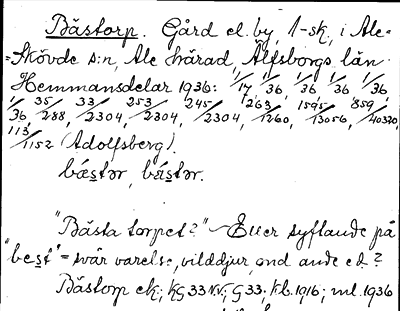 Bästorp. Gård el. by, 1-sk, i Ale-
-Skövde s:n, Ale härad, Älfsborgs län.
Hemmansdelar 1936: 1/17, 1/36, 1/36, 1/36, 1/36,
1/36, 35/288, 33/2304, 253/2304, 245/2304, 263/1260, 1595/13056, 859/40320,
113/1152 (Adolfsberg).
bæstər, bästər.
"Bästa torpet?" Eller syftande på
"best" = svår varelse, vilddjur, ond ande ed.?
Bästorp ek; KG 33 KV; G 33; kb. 1916; ml. 1936